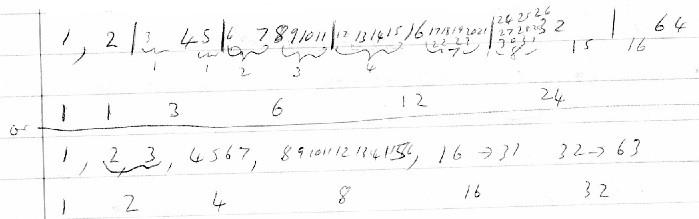 1 , 2 | 3 4 5 | 6 7 8 9 10 11 | 12 13 14 15 16 17 18 19 20 21 | 24 25 26 3 2 | 64
22 23 27 28 29
1 1 2 3 4 7 8 15 16
1 1 3 6 12 24
or
1 , 2 3 , 4 5 6 7 , 8 9 10 11 12 13 14 15 , 16 → 31 32 → 63
1 2 4 8 16 32